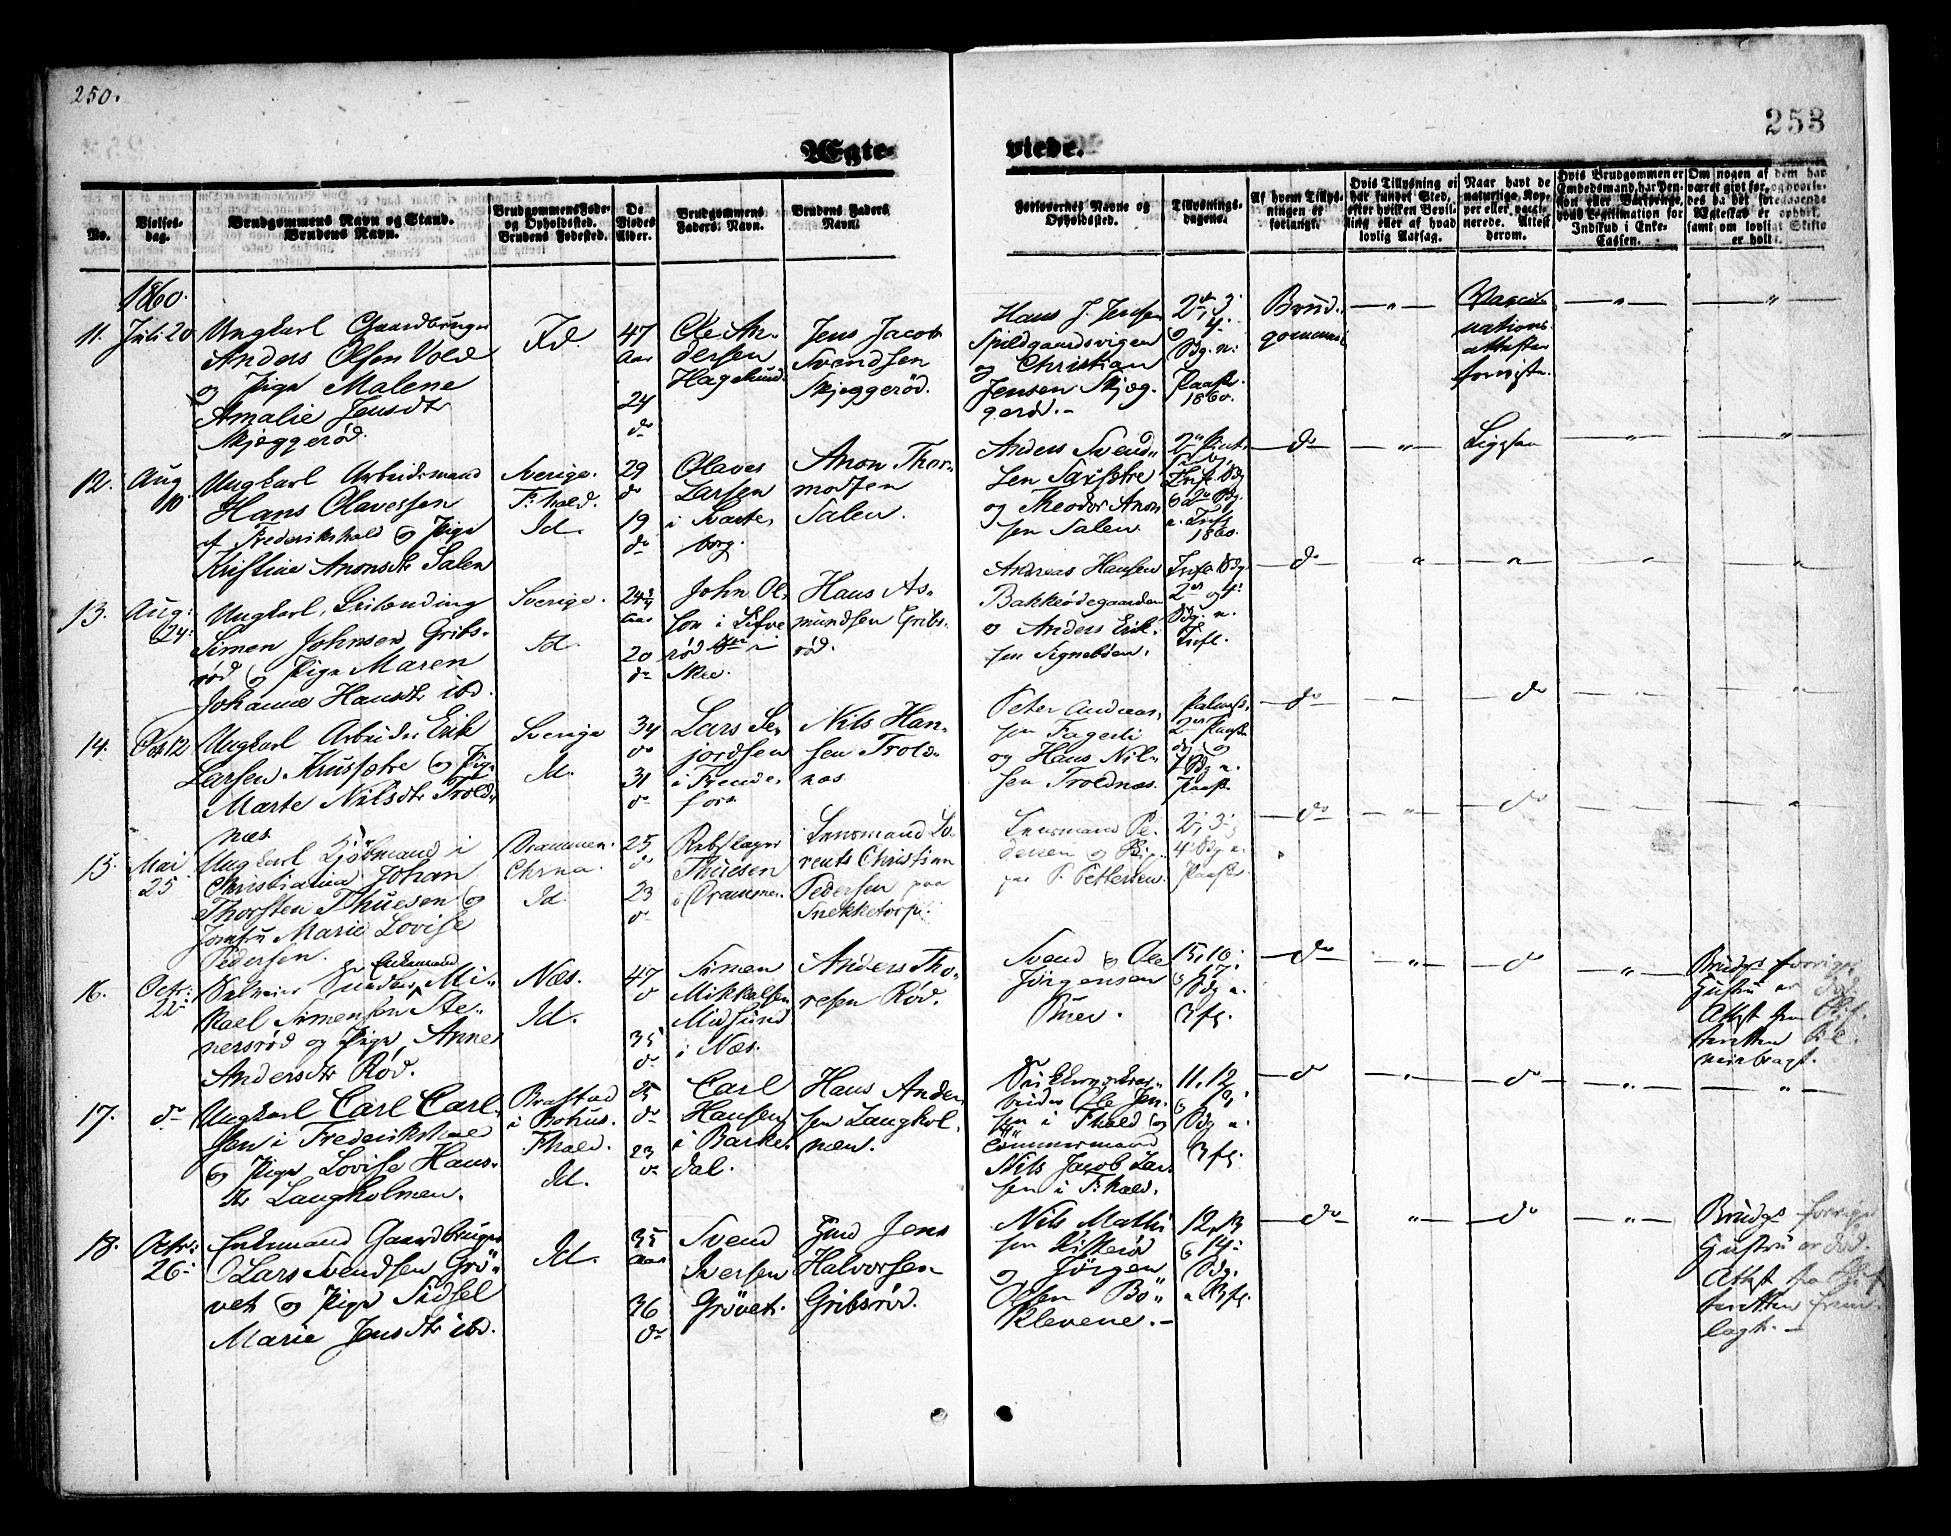 250.
253
Ægte-
viede.
No.
Vielses-
dag.
Brudgommens Navn og Stand.
Brudens Navn.
Brudgommens Føde-
og Opholdsted.
Brudens Fødested.
De
Viedes
Alder.
Brudgommens
Faders Navn.
Brudens Faders
Navn.
Forlovernes Navne og
Opholdssted.
Tillysnings-
dagene.
Af hvem Tillys-
ningen er
forlangt.
Hvis Tillysning ei
har fundet Sted,
efter hvilken Bevil-
ling eller af hvad
lovlig Aarsag.
Naar havt de
naturlige Kop-
per eller vacci-
nerede. Attest
derom.
Hvis Brudgommen er
Embedsmand, har Pen-
sion eller
hvad Legitimation for
Indskud i Enke-
Cassen.
Om nogen af dem har
været gift før,
des da det foregaaende
Ægteskab er ophørt,
samt om lovligt Skifte
er holdt.
1860.
11.
Juli 20
Ungkarl Gaardbruger
Anders Olsen Vold
og Pige Malene
Amalie Jensdtr
Skjeggerød.
Id.
47
aar
24
do
Ole An-
dersen
Hagelund.
Jens Jacob
Svendsen
Skjeggerød.
Hans J. Jensen
Spildgaardsvigen
og Christian
Jensen Skjeg-
gerød.-
2den, 3
og 4.
Sdg. n.
Paaske.
1860.
Brud-
gommen
"
Vacci-
nations-
attester
foreviste.
"
"
12.
Aug
10.
Ungkarl Arbeidsmand
Hans Olavessen
af Frederikshald og Pige
Kristine Anonsdtr Salen
Sverige.
F:hald.
Id.
29
do
19
do
Olaves
Larsen
i Svarte-
borg.
Anon Thor-
modsen
Salen.
Anders Svend-
sen
og Theodor Anon-
sen Salen.
1860.
do
"
Ligesaa
"
"
13.
Aug:
24:
Ungkarl,
Simen Johnsen Gribs-
rød og Pige Maren
Johanne Hansdtr ibd.
Sverige.
Id.
20
do
John Ol-
sen i
rød
Skee.
Hans As-
mundsen Gribs-
rød.
Andreas Hansen
Bakkeødegaarden
og Anders Erik-
sen Signebøen.
do
"
"
"
"
14.
Oct. 12
Ungkarl Arbeider Erik
Larsen Krussætre og Pige
Marte Nilsdtr Trold-
næs
Sverige
Id.
34
do
31
do
Lars Se-
jordsen
Nils Han-
sen Trold-
næs
Peter Andreas-
sen Fagerli
og Hans Nil-
sen Troldnæs.
do
"
do
"
"
15.
Mai
25
Ungkarl Kjøbmand i
Christiania Johan
Thorsten Thuesen og
Jomfru Marie Lovise
Pedersen.
Drammen.
Chrna.
Id.
25
do
23
do
Rebslager
Thuesen
i Drammen.
Lensmand Lo-
rents Christian
Pedersen paa
Snekketorp.
Lensmand Pe-
dersen og
P. Pettersen.
2; 3;
4 Sdg n.
Paaske.
do
"
do
"
16.
Octr:
22
Enkemand Mi-
kael Simensen Ste-
nersrød og Pige Anne
Andersdtr Rød.
Næs.
Id.
47
do
35
do
Simen
Mikkelsen
Midsund
i Næs.
Anders Tho-
resen Rød.
Svend og Ole
Jørgensen
Buer.
15, 16
og 17.
Sdg n.
do
"
do
"
Brudgs forrige
Hustru er død.
Attest fra Skif-
teretten
17.
do
Ungkarl Carl Carl-
sen i Frederikshald
og Pige Lovise Hans-
dtr Langholmen.
Brastad
i Bohus.
Fhald.
Id.
25
do
23
do
Carl
Hansen
i Barke-
dal.
Hans Ander-
sen Langhol-
men.
Ole Jen-
sen i Fhald og
Tømmermand
Nils Jacob Lar-
sen i F:hald.
11, 12
og 13
Sdg n.
do
"
do
"
"
18.
Octr:
26:
Enkemand Gaardbruger
Lars Svendsen Grø-
vet og Pige Sidsel
Marie Jensdtr ibd.
Id.
35
aar
36
do
Svend
Iversen
Grøvet.
Jens
Halvorsen
Gribsrød.
Nils Mathi-
sen Kitterød
og Jørgen
Olsen Bø-
klevene.-
12, 13
og 14
Sdg.
do
"
do
"
Brudgs forrige
Hustru er død.
Attest fra Skif-
teretten frem-
lagt.-